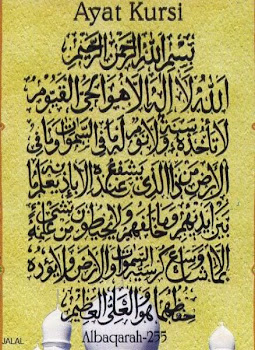 Ayat Kursi
بسم الله الرحمن الرحيم
الله لا إله إلا هو الحي القيوم
لا تأخذه سنة ولا نوم له ما في السموات وما في
الأرض من ذا الذي يشفع عنده إلا بإذنه يعلم ما
بين أيديهم وما خلفهم ولا يحيطون بشيء من علمه
إلا بما شاء وسع كرسيه السموات والأرض ولا يئوده
حفظهما وهو العلي العظيم
Albaqarah-255
JALAL